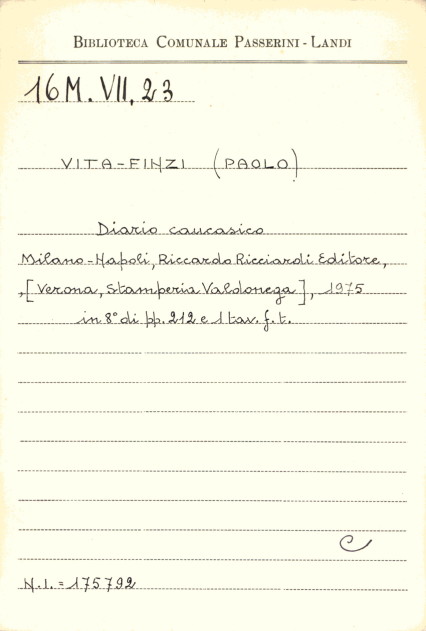 BIBLIOTECA COMUNALE PASSERINI-LANDI
16 M. VII, 23
VITA-FINZI (PAOLO)
Diario caucasico
Milano-Napoli, Riccardo Ricciardi Editore,
,[Verona, Stamperia Valdonega], 1975
in 8° di pp. 212 e 1 tav. f. t.
C
N.I. = 175792